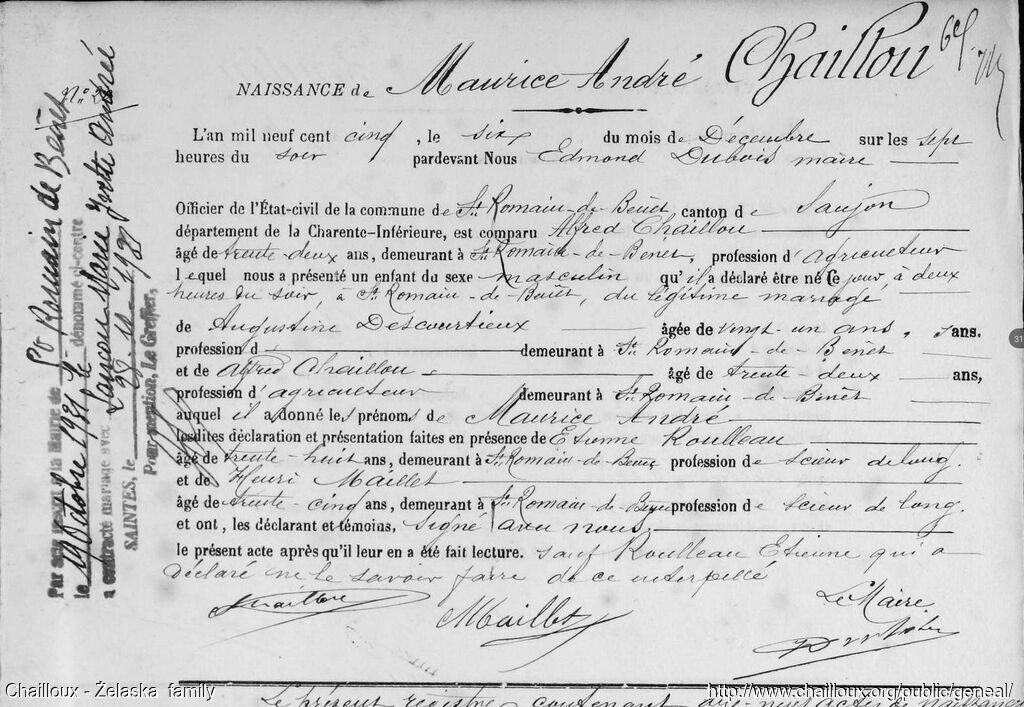 NAISSANCE de Maurice André Chaillou
L'an mil neuf cent cinq, le six du mois de Décembre sur les sept
heures du soir pardevant Nous Edmond Dubois maire
Officier de l'État-civil de la commune de St Romain-de-Benêt canton de Saujon
département de la Charente-Inférieure, est comparu Alfred Chaillou
âgé de trente-deux ans, demeurant à St Romain-de-Benêt, profession d'agriculteur
lequel nous a présenté un enfant du sexe masculin qu'il a déclaré être né ce jour, à deux
heures du soir, à St Romain-de-Benêt, du légitime mariage
de Augustine Descourtieux âgée de vingt-un ans, ans.
profession d demeurant à St Romain-de-Benêt
et de Alfred Chaillou âgé de trente-deux ans,
profession d'agriculteur demeurant à St Romain-de-Benêt
auquel il a donné les prénoms de Maurice André
lesdites déclaration et présentation faites en présence de Etienne Roulleau
âgé de trente-huit ans, demeurant à St Romain-de-Benêt profession de scieur de long.
et de Henri Maillet
âgé de trente-cinq ans, demeurant à St Romain-de-Benêt profession de scieur de long.
et ont, les déclarant et témoins, signé avec nous
le présent acte après qu'il leur en a été fait lecture. sauf Roulleau Etienne qui a
déclaré ne le savoir faire de ce interpellé
Chaillou
Maillet
Le Maire
Par acte de la Mairie de St Romain de Benêt
le 19 Octobre 1931 le dénommé ci-contre
a contracté mariage avec Marie Yvette Andrée
SAINTES, le 1931
Pour mention, Le Greffier,
N°
31
Chailloux - Żelaska family
http://www.chailloux.org/public/geneal/
Le présent registre contenant dix-neuf actes de naissance